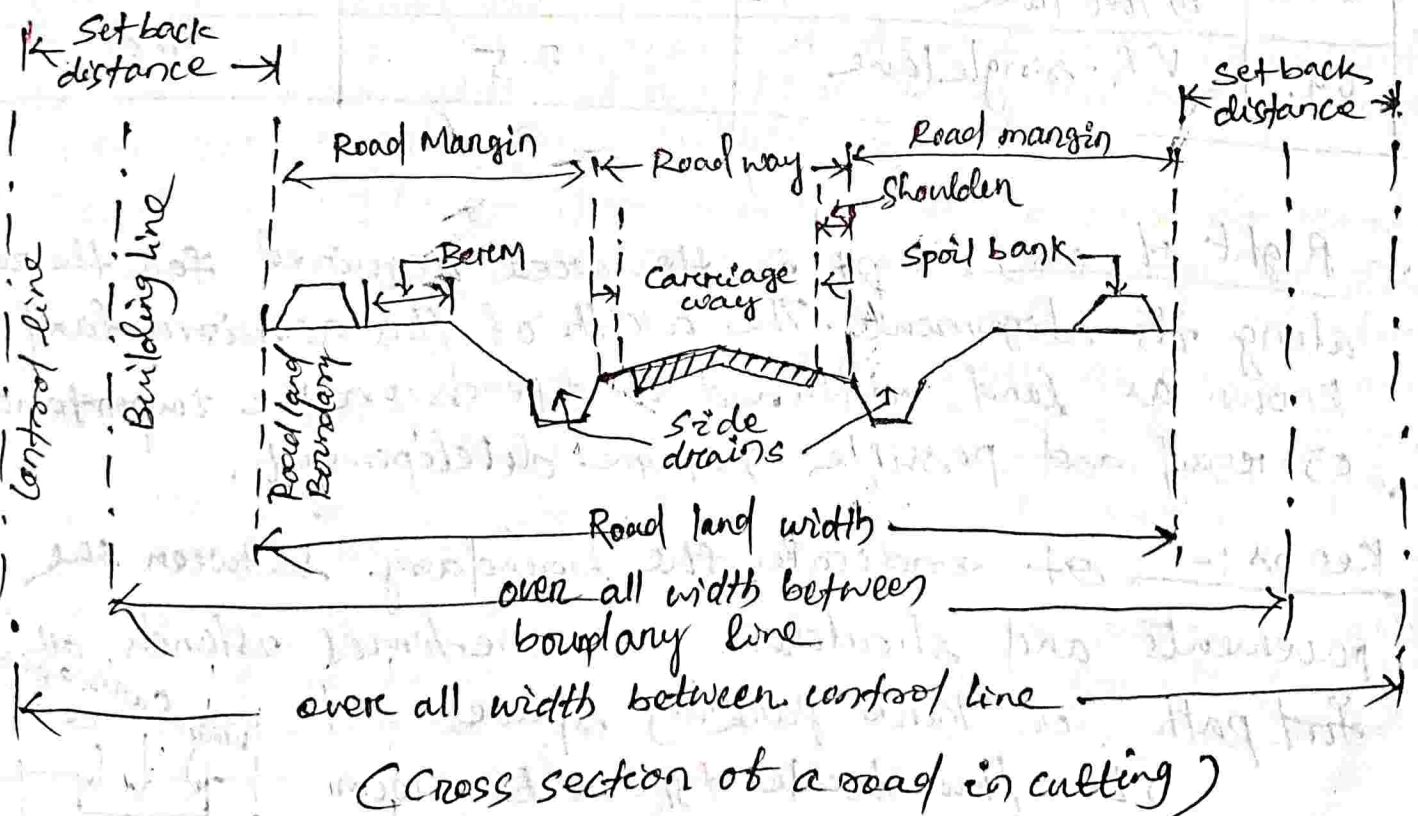 Setback
distance
Setback
distance
Road Margin
Road way
Road mangin
Shoulden
Berem
Carriage
way
Spoil bank
Control line
Building line
Road land
Boundary
Side
drains
Road land width
over all width between
boundary line
over all width between control line
(Cross section of a road in cutting)